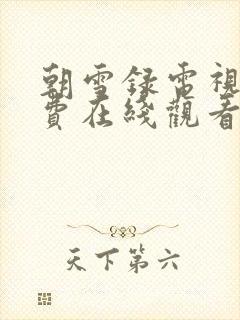 朝雪録電視
費在綫觀看
天下第六